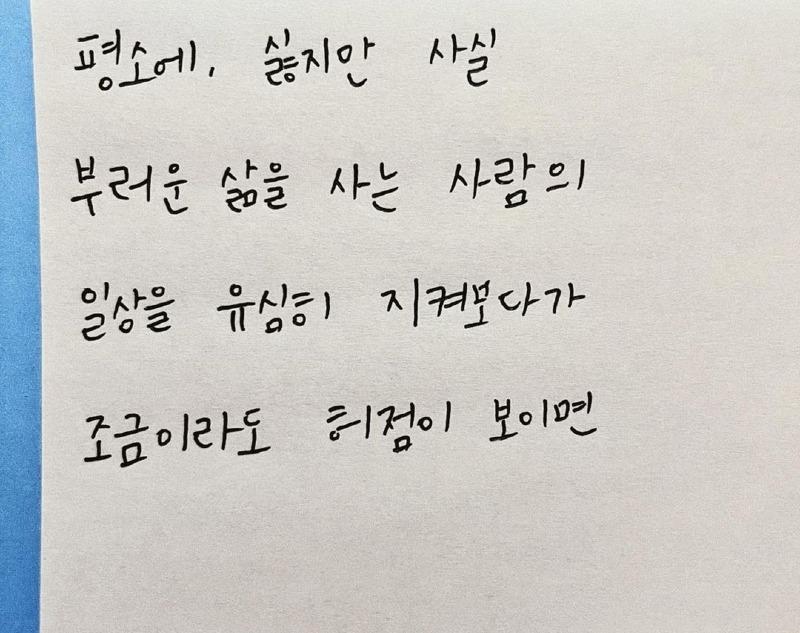 평소에, 싫지만 사실
부러운 삶을 사는 사람의
일상을 유심히 지켜보다가
조금이라도 허점이 보이면